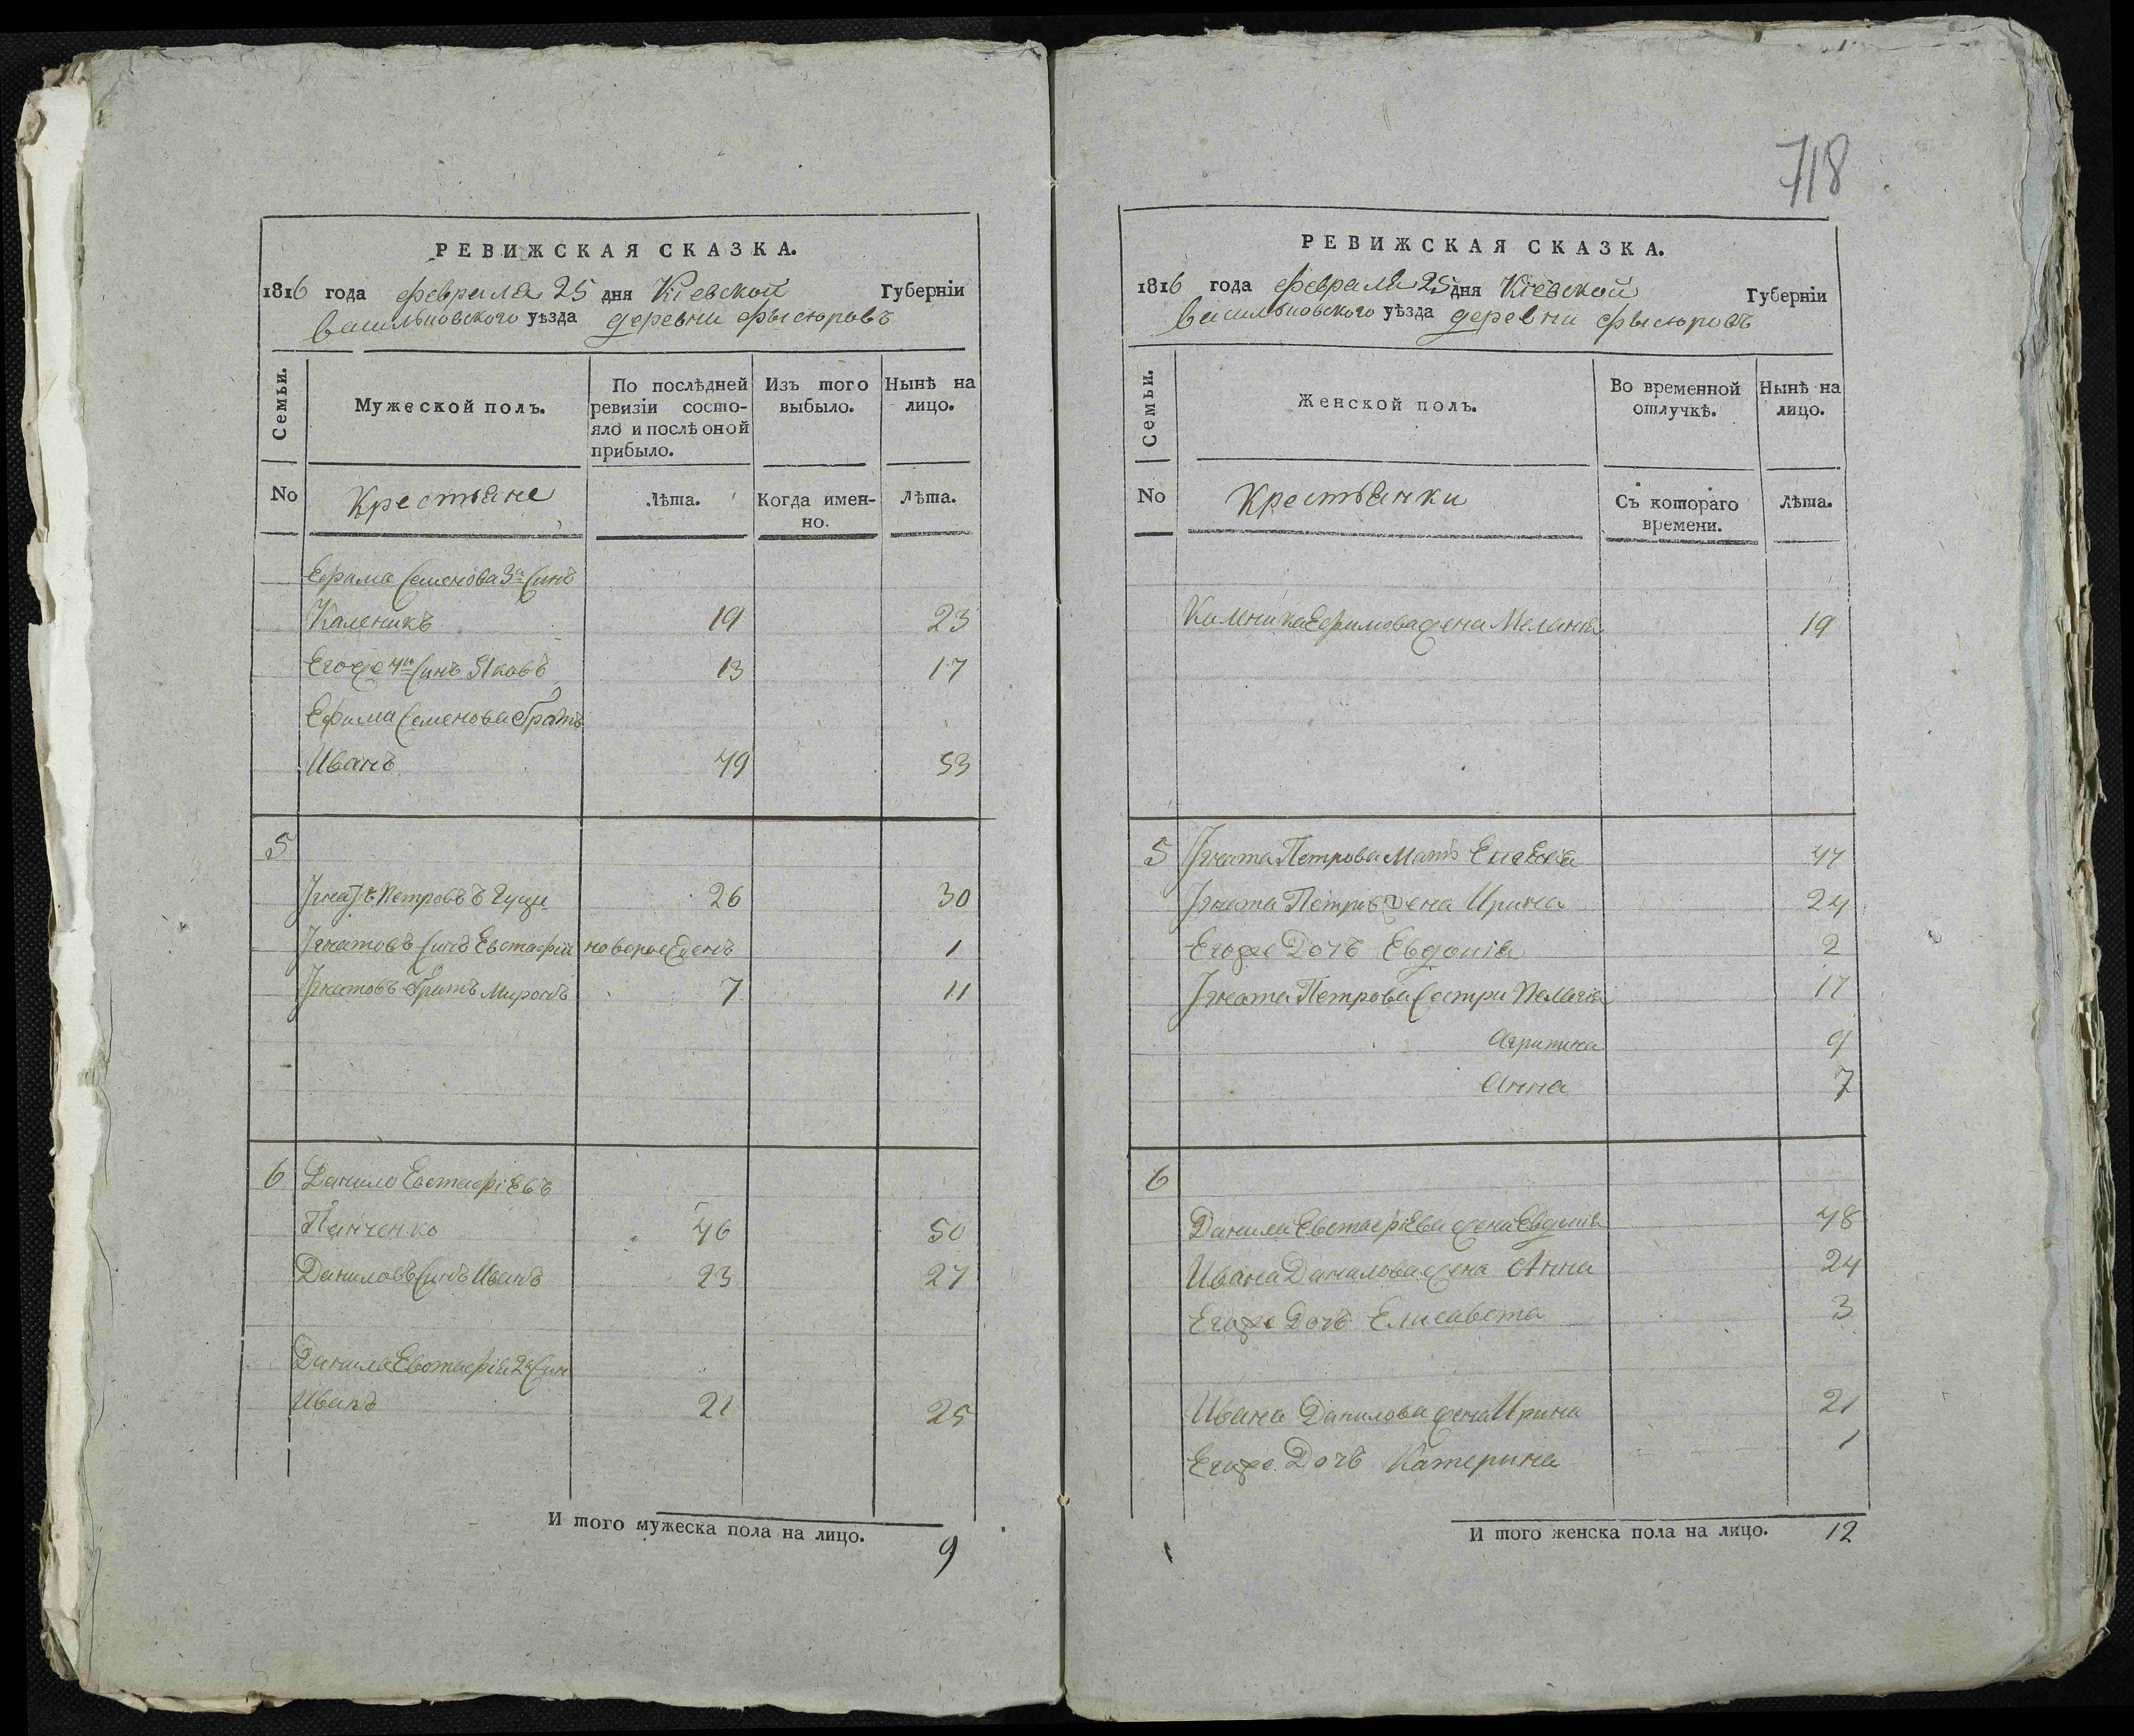 РЕВИЖСКАЯ СКАЗКА.
1816 года февраля 25 дня Кіевской Губерніи
васильковского уѣзда деревни фысюровъ
Семьи.
Мужеской полъ.
По послѣдней ревизіи состояло и послѣ оной прибыло.
Изъ того выбыло.
Нынѣ на лицо.
No
Крестьяне
Лѣта.
Когда именно.
Лѣта.
Ефима Семенова 3й Синъ
Каленикъ 19 23
Егоже 4й Синъ Яковъ 13 17
Ефима Семенова братъ
Иванъ 49 53
5
Игнатъ Петровъ 26 30
Игнатовъ Синъ Евстафій новорожденъ 1
Игнатовъ братъ Миронъ 7 11
6 Данило Евстафіевъ
Панченко 46 50
Даниловъ Синъ Иванъ 23 27
Данила Евстафія 2й Син
Иванъ 21 25
И того мужеска пола на лицо. 9
718
РЕВИЖСКАЯ СКАЗКА.
1816 года февраля 25 дня Кіевской Губерніи
васильковского уѣзда деревни фысюровъ
Семьи.
Женской полъ.
Во временной отлучкѣ.
Нынѣ на лицо.
No
Крестьянки
Съ котораго времени.
Лѣта.
Каленика Ефимова жена Меланія 19
5 Игната Петрова Мать 47
Игната Петрова жена Ирина 24
Егоже Дочъ Евдокія 2
Игната Петрова Сестри Пелагія 17
Агрипина 9
Анна 7
6
Данила Евстафіева жена Евдокія 48
Ивана Данилова жена Анна 24
Егоже Дочъ Елисавета 3
Ивана Данилова жена Ирина 21
Егоже Дочъ Катерина 1
И того женска пола на лицо. 12